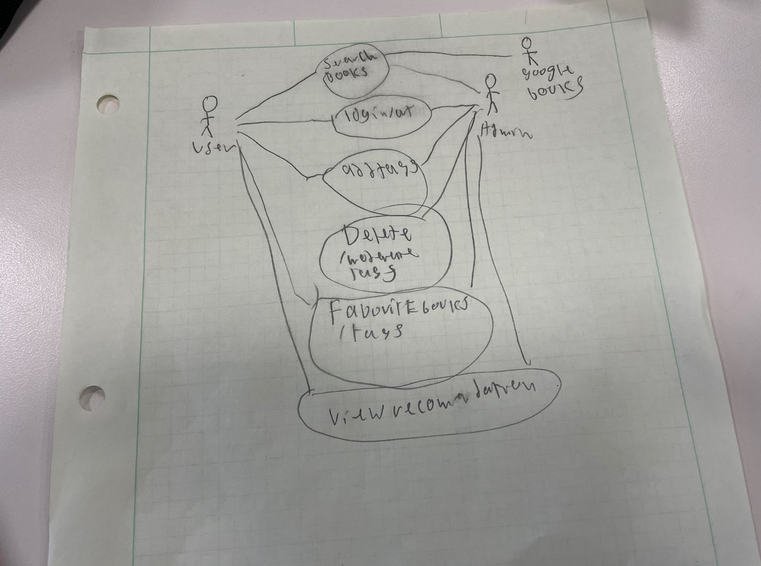 Search
books
google
books
login/out
Admin
User
add tags
Delete
/moderate
tags
FavoritE books
/tags
View recomadation